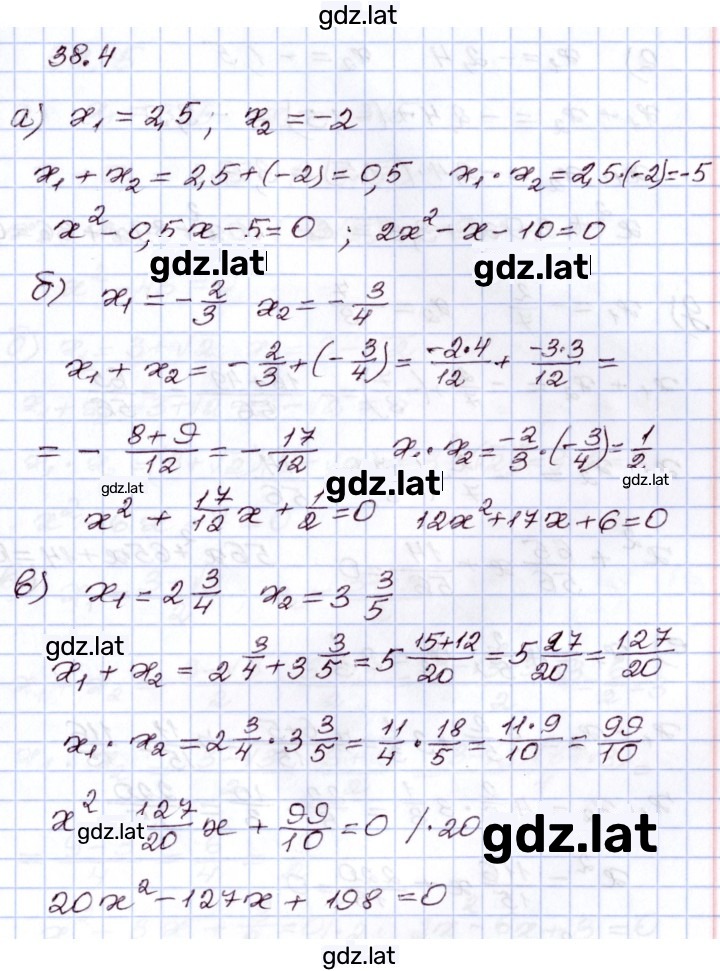 gdz.lat
38.4
а) x₁ = 2,5 ; x₂ = -2
x₁ + x₂ = 2,5 + (-2) = 0,5 x₁ · x₂ = 2,5·(-2) = -5
x² - 0,5x - 5 = 0 ; 2x² - x - 10 = 0
gdz.lat gdz.lat
б) x₁ = -2/3 x₂ = -3/4
x₁ + x₂ = -2/3 + (-3/4) = -2·4/12 + -3·3/12 =
= - 8+9/12 = - 17/12 x₁·x₂ = -2/3 · (-3/4) = 1/2
gdz.lat gdz.lat gdz.lat
x² + 17/12 x + 1/2 = 0 12x² + 17x + 6 = 0
в) x₁ = 2 3/4 x₂ = 3 3/5
gdz.lat
x₁ + x₂ = 2 3/4 + 3 3/5 = 5 15+12/20 = 5 27/20 = 127/20
x₁ · x₂ = 2 3/4 · 3 3/5 = 11/4 · 18/5 = 11·9/10 = 99/10
x² - 127/20 x + 99/10 = 0 /·20
gdz.lat gdz.lat
20x² - 127x + 198 = 0
gdz.lat